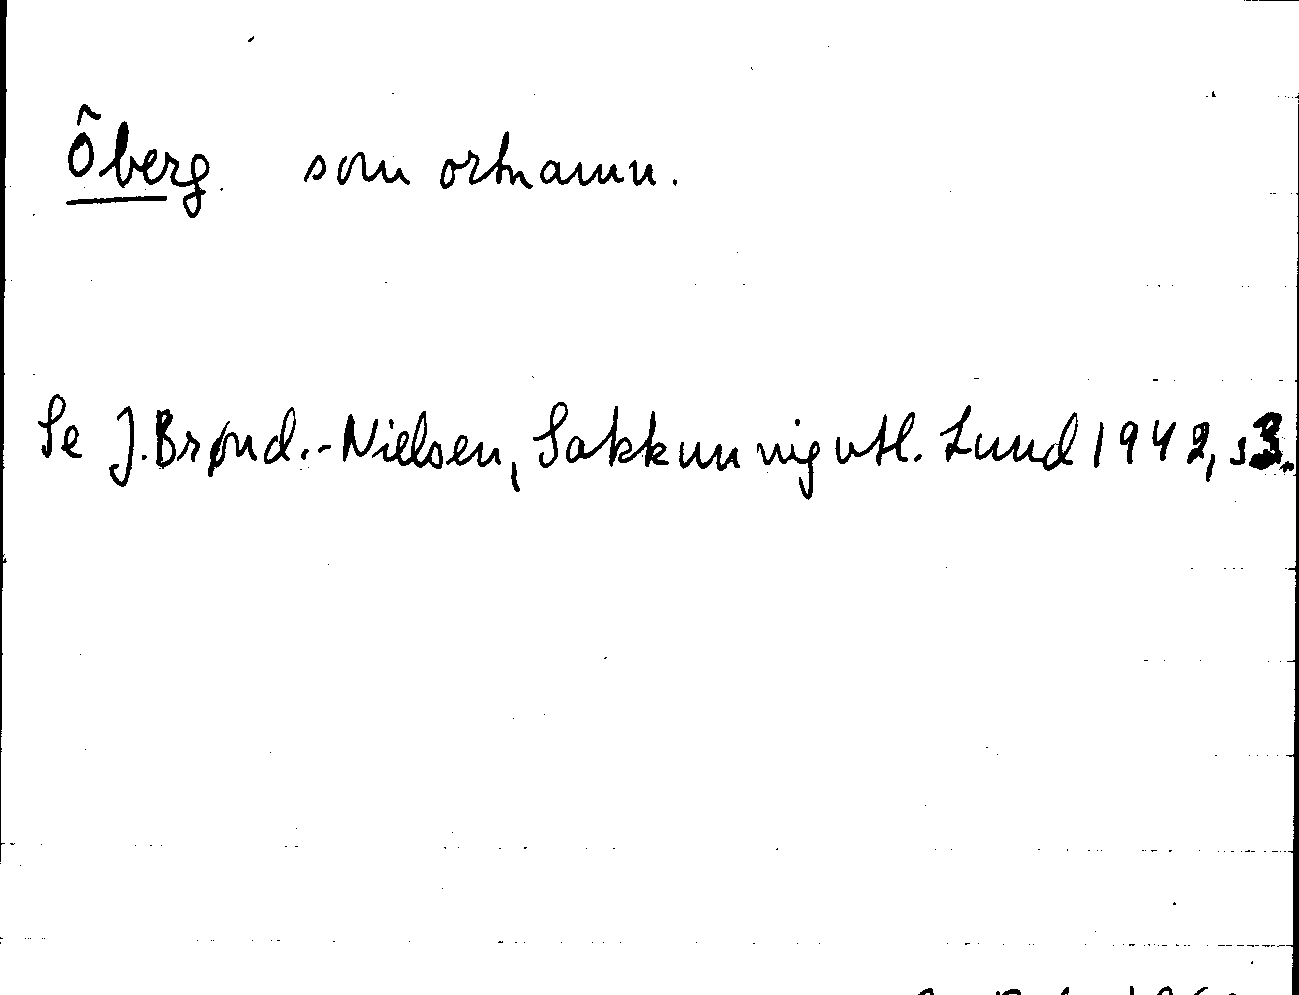 Õberg som ortnamn.
Se J. Brønd.-Nielsen, Sakkunnigutl. Lund 1942, s 3.